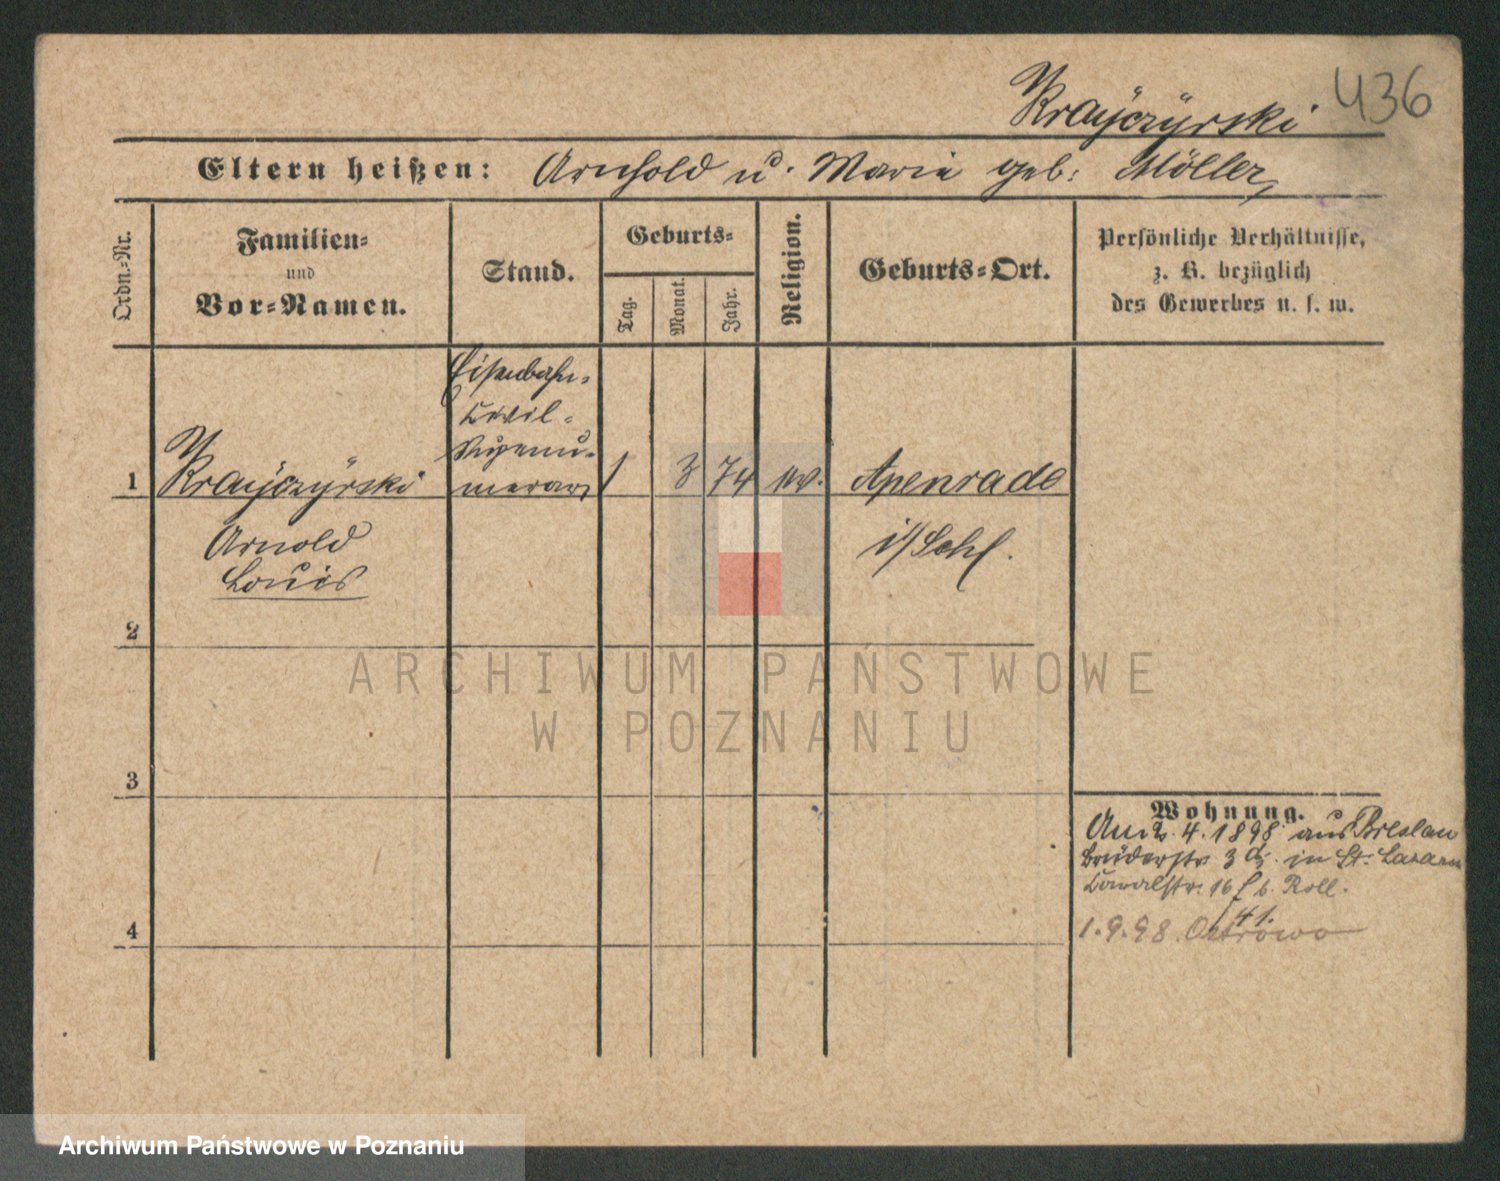 436
Kraÿczÿrski
Eltern heißen: Arnhold u. Marie geb: Möller,
Ordn.-Nr.
Familien-
und
Vor-Namen.
Stand.
Geburts-
Tag.
Monat.
Jahr.
Religion.
Geburts-Ort.
Persönliche Verhältnisse,
z. B. bezüglich
des Gewerbes u. s. w.
Eisenbahn-
Civil-
Supernu-
merar
1 Kraÿczÿrski 1 3 74 ev. Apenrade
Arnold
Louis
i/Schl.
2
3
4
ARCHIWUM PAŃSTWOWE
W POZNANIU
Wohnung.
Am 2. 4. 1898 aus Breslau
Brüderstr 3 in St. Lazarus
16 b. Roll.
41.
1.9.98. Ostrowo
Archiwum Państwowe w Poznaniu